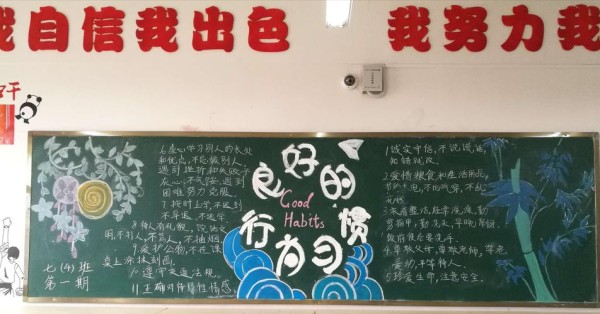 我自信我出色
我努力我
好的
良
Good
Habits
惯
行为习
6.虚心学习别人的长处
和优点,不忌妒别人。
遇到挫折和失败不
灰心,不气馁,遇到
困难努力克服。
7.按时上学,不迟到
不早退,不逃学
8.待人有礼貌,说话文
明,不引人,不骂人,不抽烟。
9.爱护公物,不在课
桌上涂抹刻画。
10.遵守交通法规。
11.正确对待异性情感。
七(4)班
第一期
1.诚实守信,不说谎,
知错就改。
2.爱惜粮食和生活用品,
节约水电,不比吃穿,不乱
花钱
3.衣着整洁,经常洗澡,勤
剪指甲,勤洗头,早晚刷牙,
饭前便后要洗手。
4.尊敬父母,尊敬老师,
5.珍爱生命,注意安全。